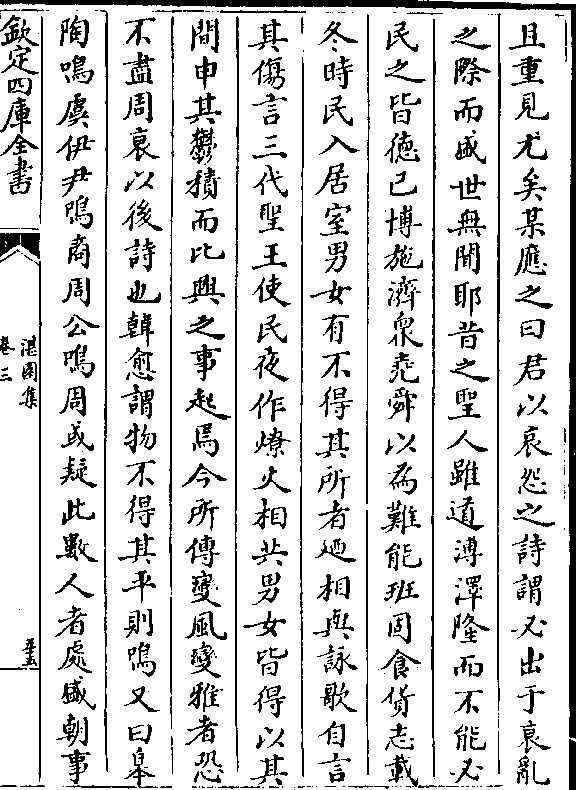 且重見尤矣某應之曰君以哀怨之詩謂必出于衰亂
之際而盛世無聞耶昔之聖人雖道溥澤隆而不能必
民之皆德已博施濟衆堯舜以為難能班固食貨志載
冬時民入居室男女有不得其所者廼相與詠歌自言
其傷言三代聖王使民夜作燎火相共男女皆得以其
間申其鬱積而比興之事起焉今所傳變風變雅者恐
不盡周衰以後詩也韓愈謂物不得其平則鳴又曰臯
陶鳴虞伊尹鳴商周公鳴周或疑此數人者處盛朝事
欽定四庫全書
湛園集
卷三